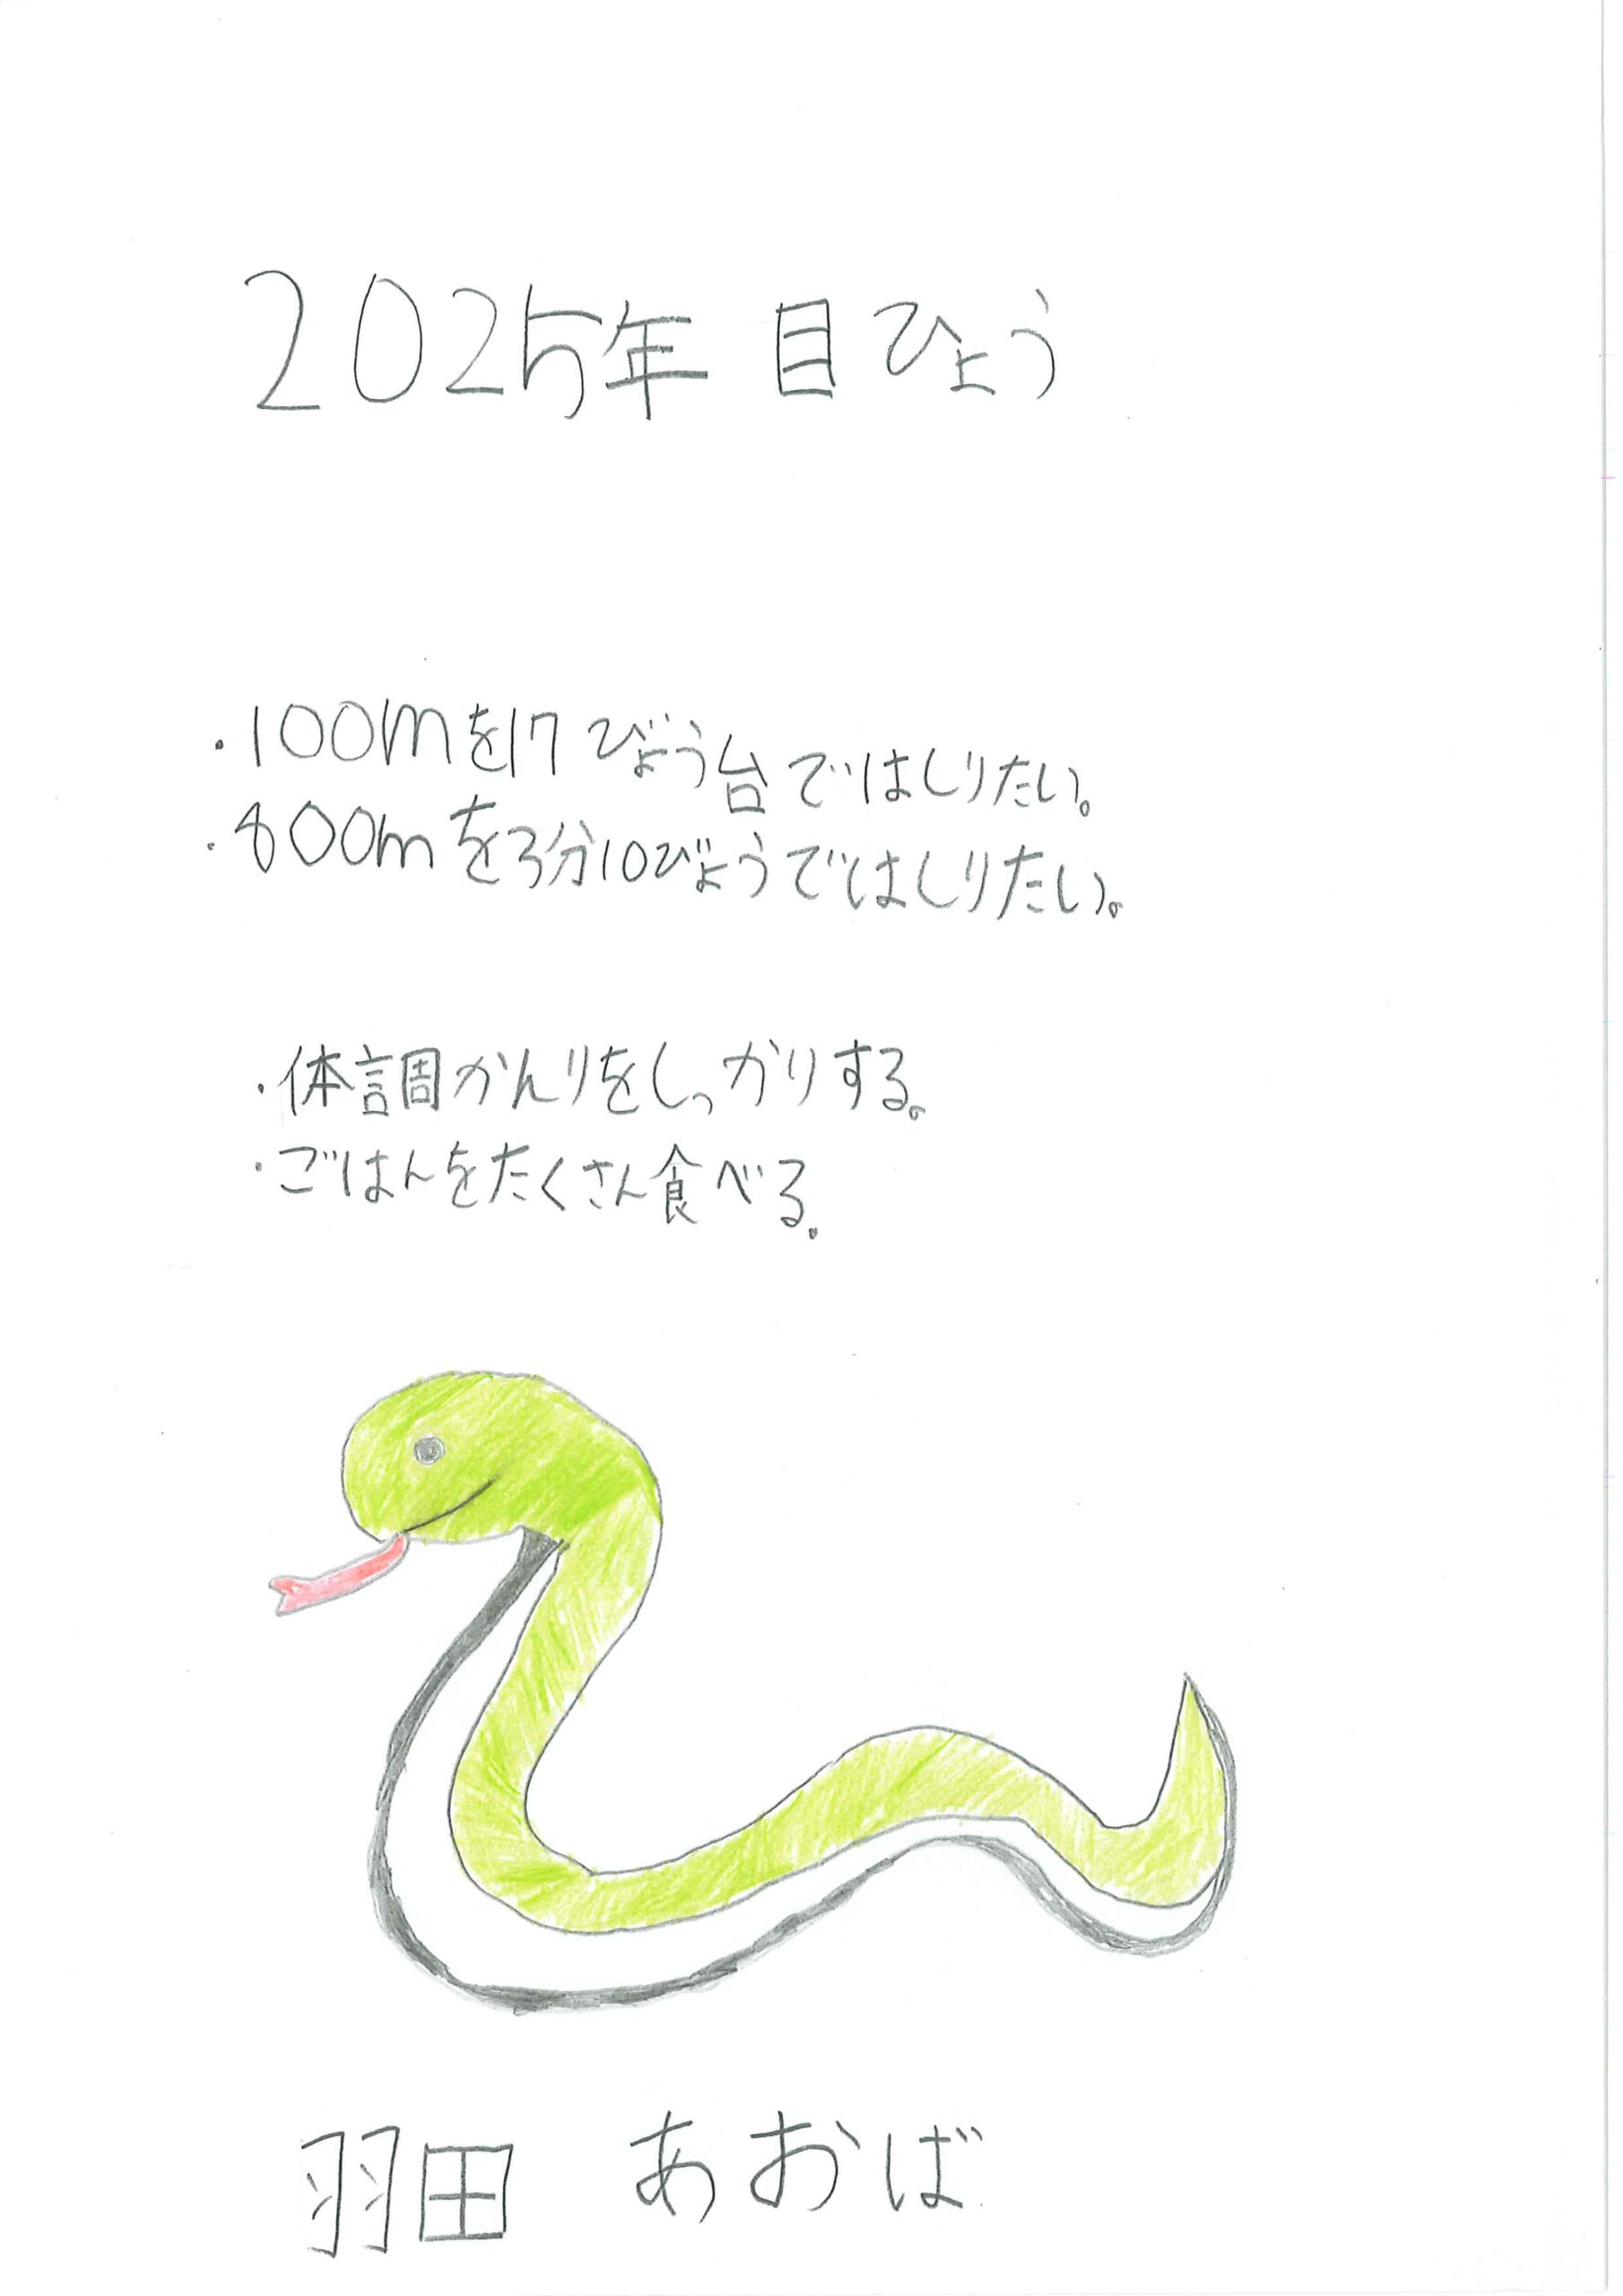 2025年 目ひょう
・100mを17びょう台ではしりたい。
・800mを3分10びょうではしりたい。
・体調かんりをしっかりする。
・ごはんをたくさん食べる。
羽田 あおば